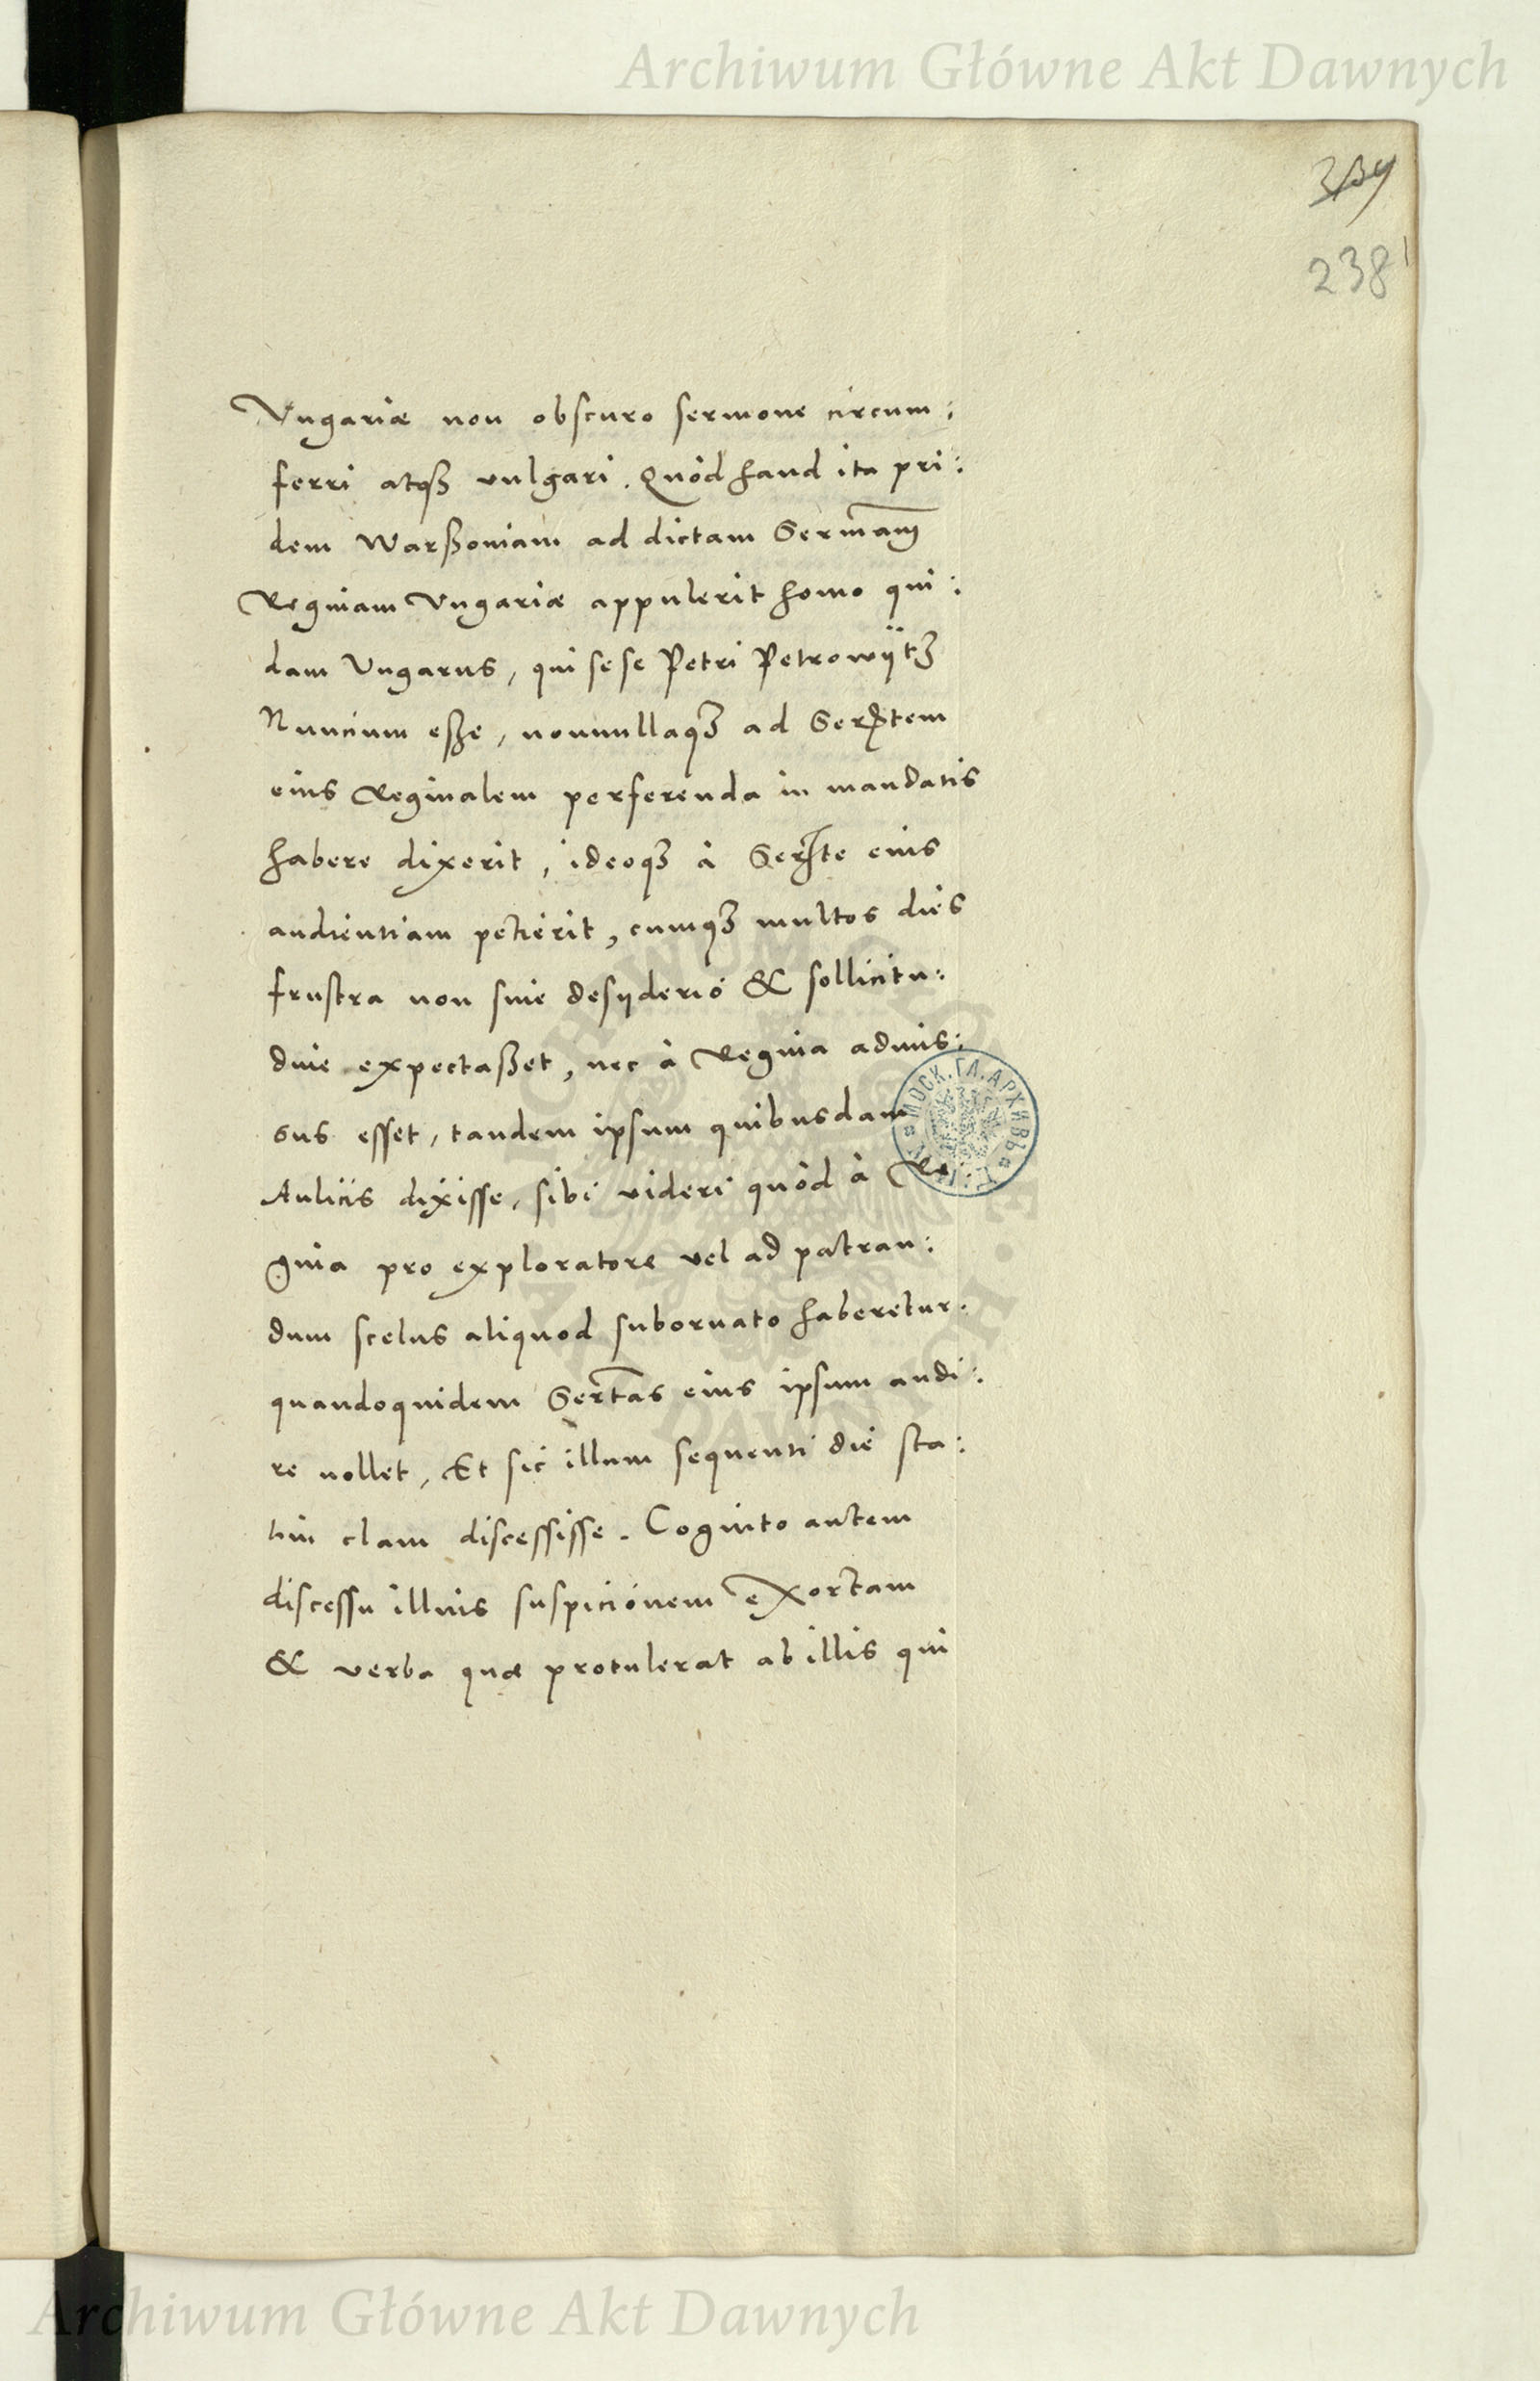 Archiwum Główne Akt Dawnych
238
Vngariæ non obscuro sermone circum:
ferri atqß vulgari. Quòd haud ita pri:
dem Warßoviam ad dictam Sermam
Reginam Vngariæ appulerit homo qui:
dam Vngarus, qui sese Petri Petrowÿtz
Nuncium eße, nonnullaqʒ ad Sertem
eius Reginalem perferenda in mandatis
habere dixerit, ideoqʒ à Serte eius
audientiam petierit, cumqʒ multos dies
frustra non sine desyderio & sollicitu:
dine expectaßet, nec à Regina admis:
sus esset, tandem ipsum quibusdam
Aulicis dixisse, sibi videri quòd à Re:
gina pro exploratore vel ad patran:
dum scelus aliquod subornato haberetur.
quandoquidem Sertas eius ipsum audi:
re nollet, Et sic illum sequenti die sta:
tim clam discessisse. Cognito autem
discessu illius suspicionem exortam
& verba quæ protulerat ab illis qui
МОСК. ГЛ. АРХИВЪ
Archiwum Główne Akt Dawnych